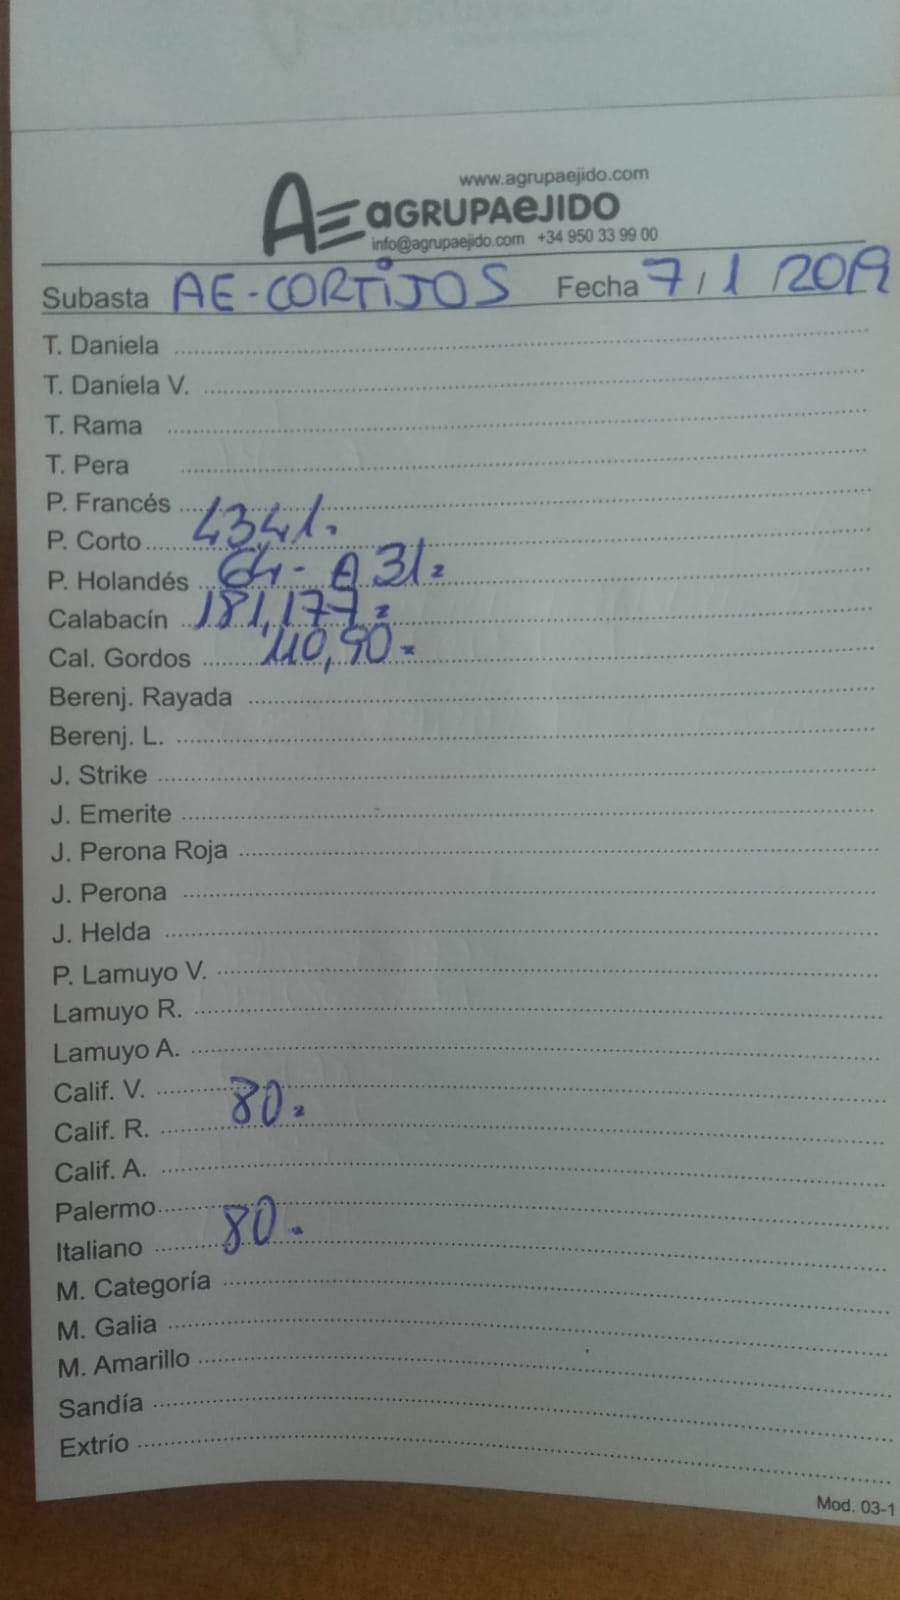 www.agrupaejido.com
AE aGRUPAeJIDO
info@agrupaejido.com +34 950 33 99 00
Subasta AE-CORTIJOS Fecha 7/1/2019
T. Daniela
T. Daniela V.
T. Rama
T. Pera
P. Francés
P. Corto 4341.
P. Holandés 64- A 31=
Calabacín 181,177=
Cal. Gordos 110,90=
Berenj. Rayada
Berenj. L.
J. Strike
J. Emerite
J. Perona Roja
J. Perona
J. Helda
P. Lamuyo V.
Lamuyo R.
Lamuyo A.
Calif. V.
Calif. R. 80=
Calif. A.
Palermo
Italiano 80=
M. Categoría
M. Galia
M. Amarillo
Sandía
Extrío
Mod. 03-1